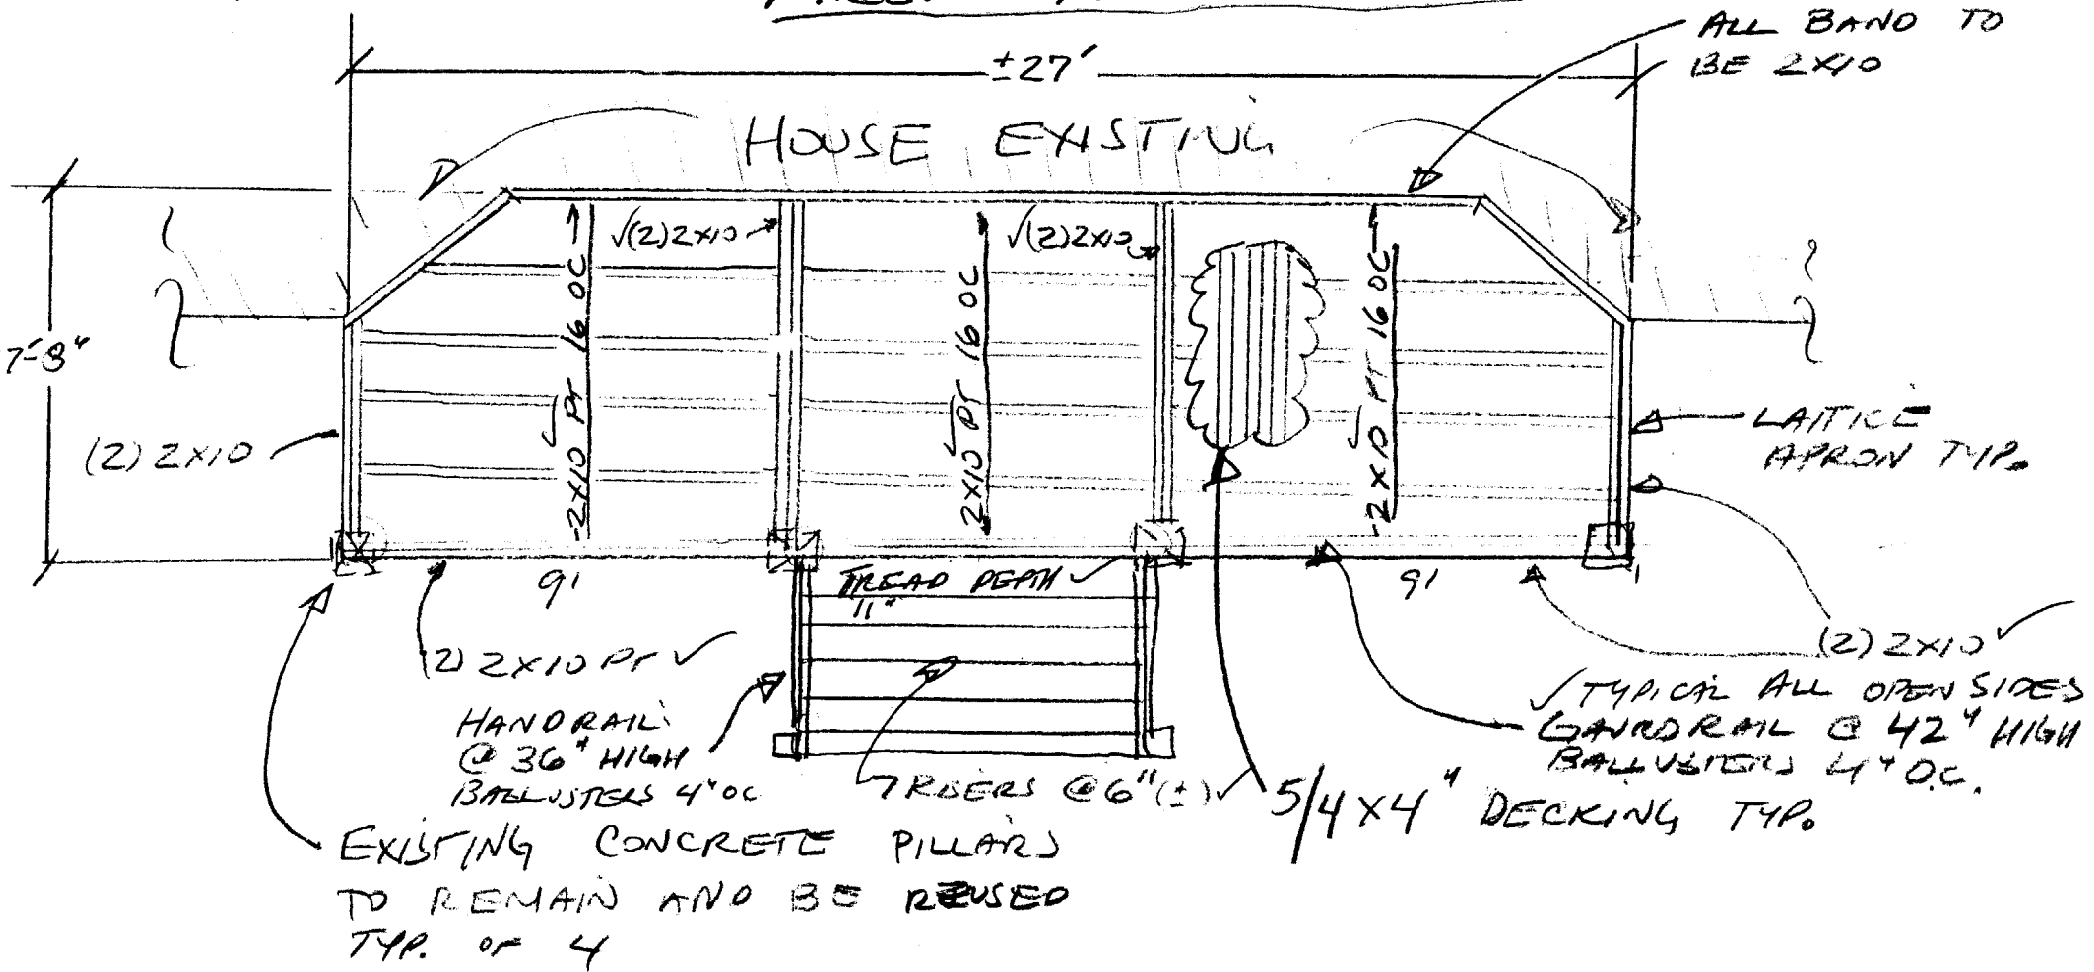 ALL BAND TO
BE 2X10
±27'
HOUSE EXISTING
√(2)2X10
√(2)2X10
2X10 PT 16 OC
2X10 PT 16 OC
2X10 PT 16 OC
7'-8"
(2) 2X10
LATTICE
APRON TYP.
9'
TREAD DEPTH
11"
9'
(2) 2X10 PT ✓
(2) 2X10 ✓
HANDRAIL
@ 36" HIGH
BALLUSTERS 4" OC
7 RISERS @ 6" (±) ✓
5/4 X 4" DECKING TYP.
✓ TYPICAL ALL OPEN SIDES
GAURDRAIL @ 42" HIGH
BALLUSTERS 4" O.C.
EXISTING CONCRETE PILLARS
TO REMAIN AND BE REUSED
TYP. OF 4